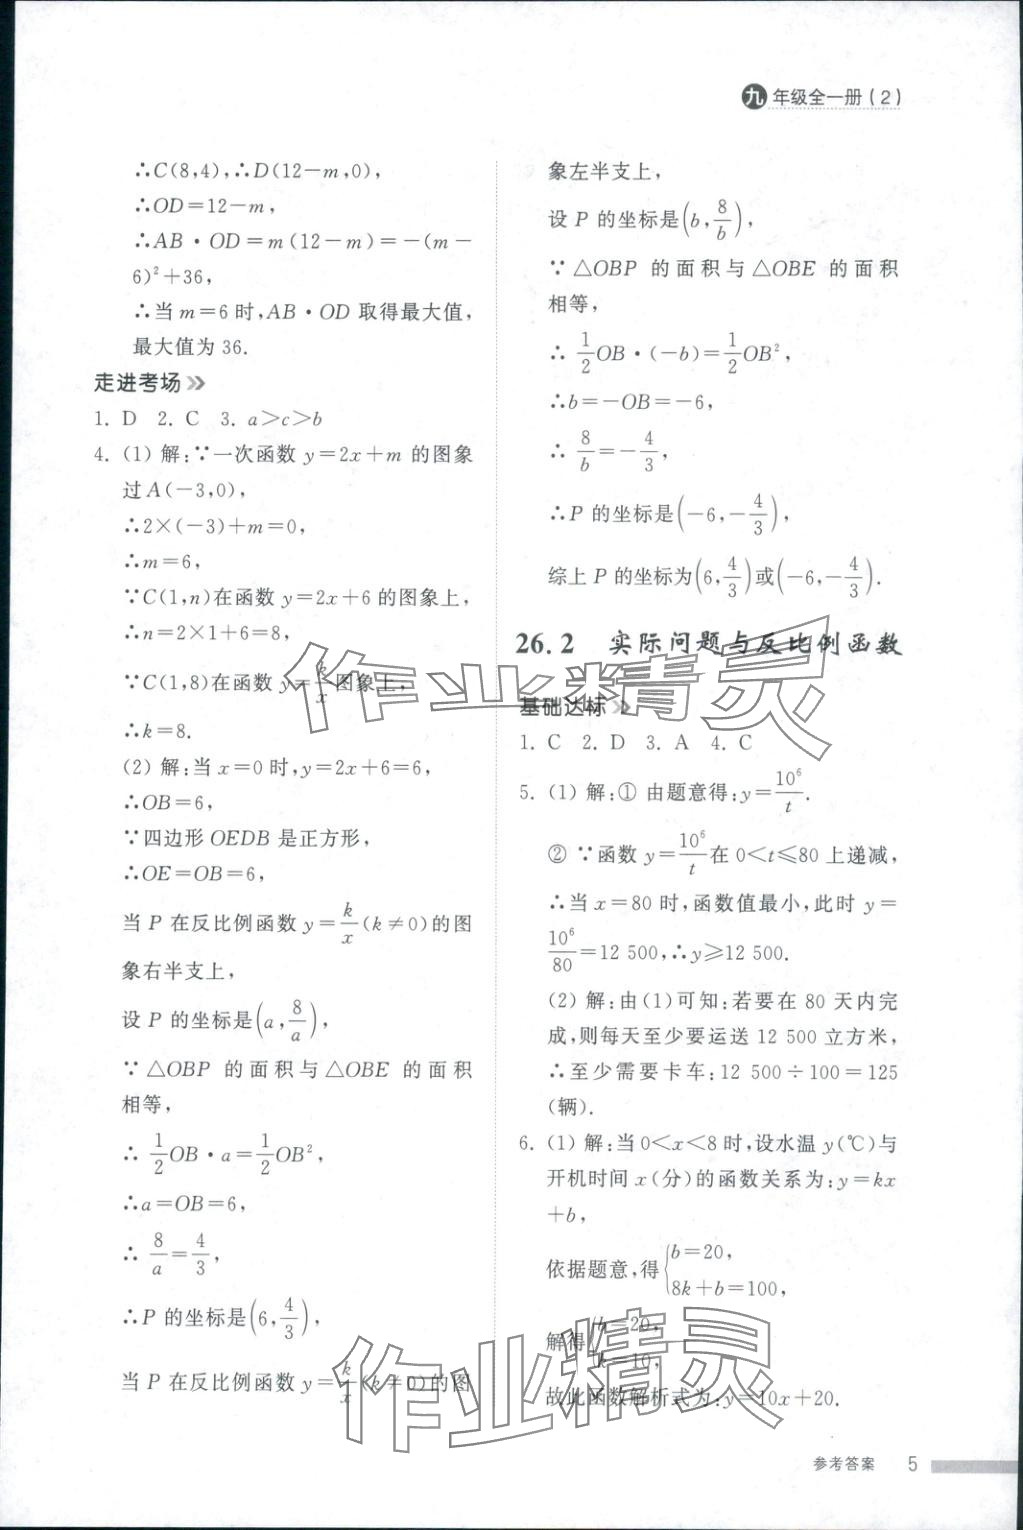 九年级全一册(2)
∴C(8,4),∴D(12-m,0),
∴OD=12-m,
∴AB·OD=m(12-m)=-(m-
6)²+36,
∴当m=6时,AB·OD取得最大值,
最大值为36.
走进考场
1. D 2. C 3. a>c>b
4. (1) 解:∵一次函数y=2x+m的图象
过A(-3,0),
∴2×(-3)+m=0,
∴m=6,
∵C(1,n)在函数y=2x+6的图象上,
∴n=2×1+6=8,
∵C(1,8)在函数y=k/x图象上,
∴k=8.
(2) 解:当x=0时,y=2x+6=6,
∴OB=6,
∵四边形OEDB是正方形,
∴OE=OB=6,
当P在反比例函数y=k/x(k≠0)的图
象右半支上,
设P的坐标是(a,8/a),
∵△OBP的面积与△OBE的面积
相等,
∴1/2OB·a=1/2OB²,
∴a=OB=6,
∴8/a=4/3,
∴P的坐标是(6,4/3),
当P在反比例函数y=k/x(k≠0)的图
象左半支上,
设P的坐标是(b,8/b),
∵△OBP的面积与△OBE的面积
相等,
∴1/2OB·(-b)=1/2OB²,
∴b=-OB=-6,
∴8/b=-4/3,
∴P的坐标是(-6,-4/3),
综上P的坐标为(6,4/3)或(-6,-4/3).
26.2 实际问题与反比例函数
基础达标
1. C 2. D 3. A 4. C
5. (1) 解:① 由题意得:y=10⁶/t.
② ∵函数y=10⁶/t在0<t≤80上递减,
∴当x=80时,函数值最小,此时y=
10⁶/80=12 500,∴y≥12 500.
(2) 解:由(1)可知:若要在80天内完
成,则每天至少要运送12 500立方米,
∴至少需要卡车:12 500÷100=125
(辆).
6. (1) 解:当0<x<8时,设水温y(℃)与
开机时间x(分)的函数关系为:y=kx
+b,
依据题意,得{b=20, 8k+b=100,
解得{b=20, k=10,
故此函数解析式为:y=10x+20.
作业精灵
作业精灵
参考答案 5